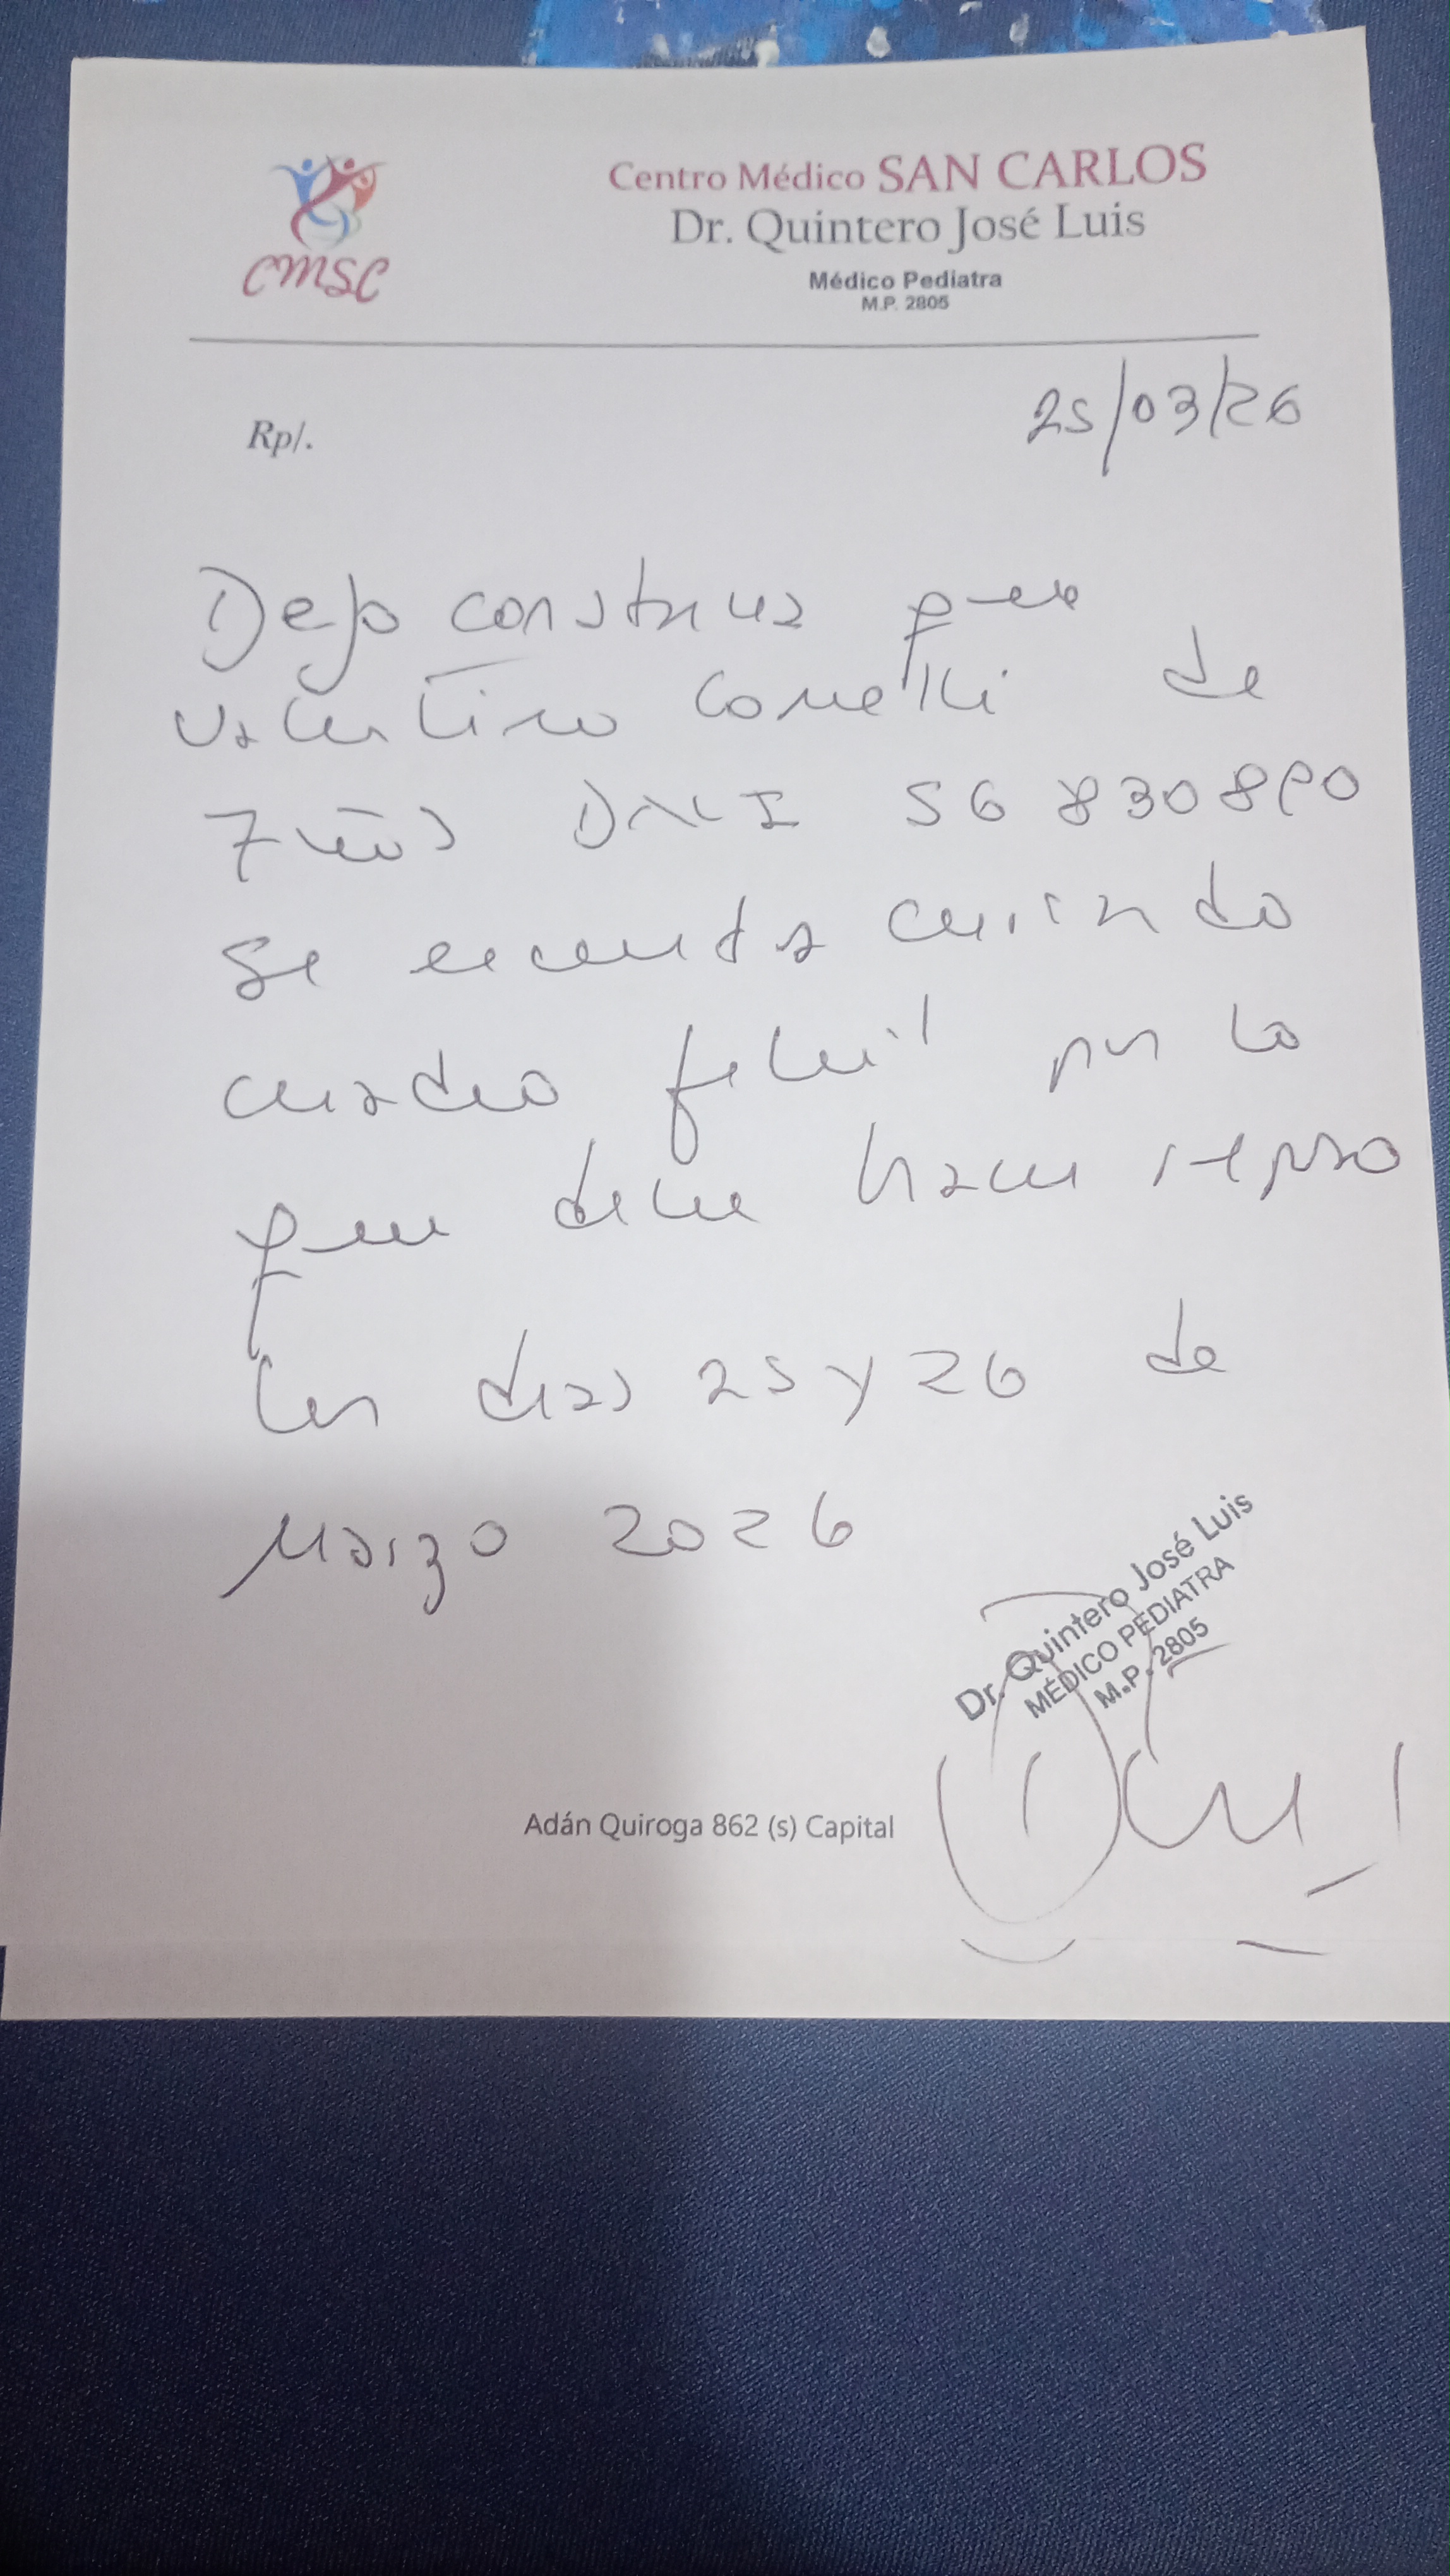 CMSC
Centro Médico SAN CARLOS
Dr. Quintero José Luis
Médico Pediatra
M.P. 2805
Rp/.
25/03/26
Dejo constancia que
Valentino de
7 años DNI 56 830890
se encuentra cursando
cuadro febril por lo
que debe hacer reposo
los dias 25 y 26 de
Marzo 2026
Dr. Quintero José Luis
MÉDICO PEDIATRA
M.P. 2805
Adán Quiroga 862 (s) Capital